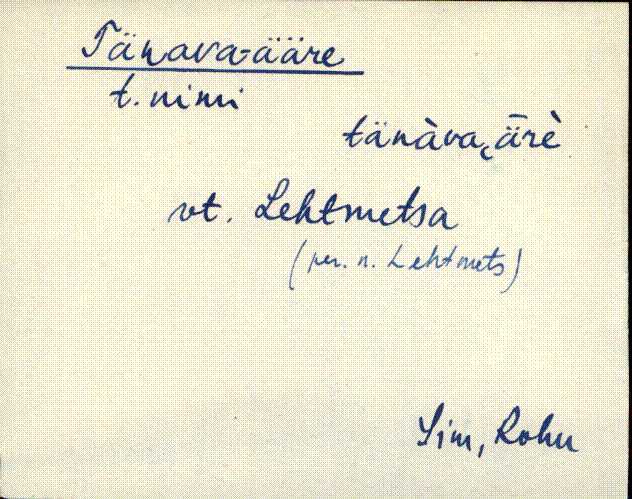 Tänava-ääre
t. nimi
tänàva˛ǟrè
vt. Lehtmetsa
(per. n. Lehtmets)
Sim, Rohu